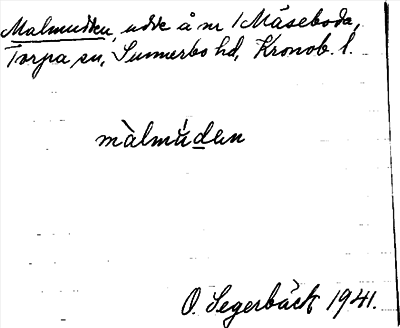 Malmudden, udde å nr 1 Måseboda,
Torpa sn, Sunnerbo hd, Kronob. l.
màlmúden
O. Segerbäck 1941.